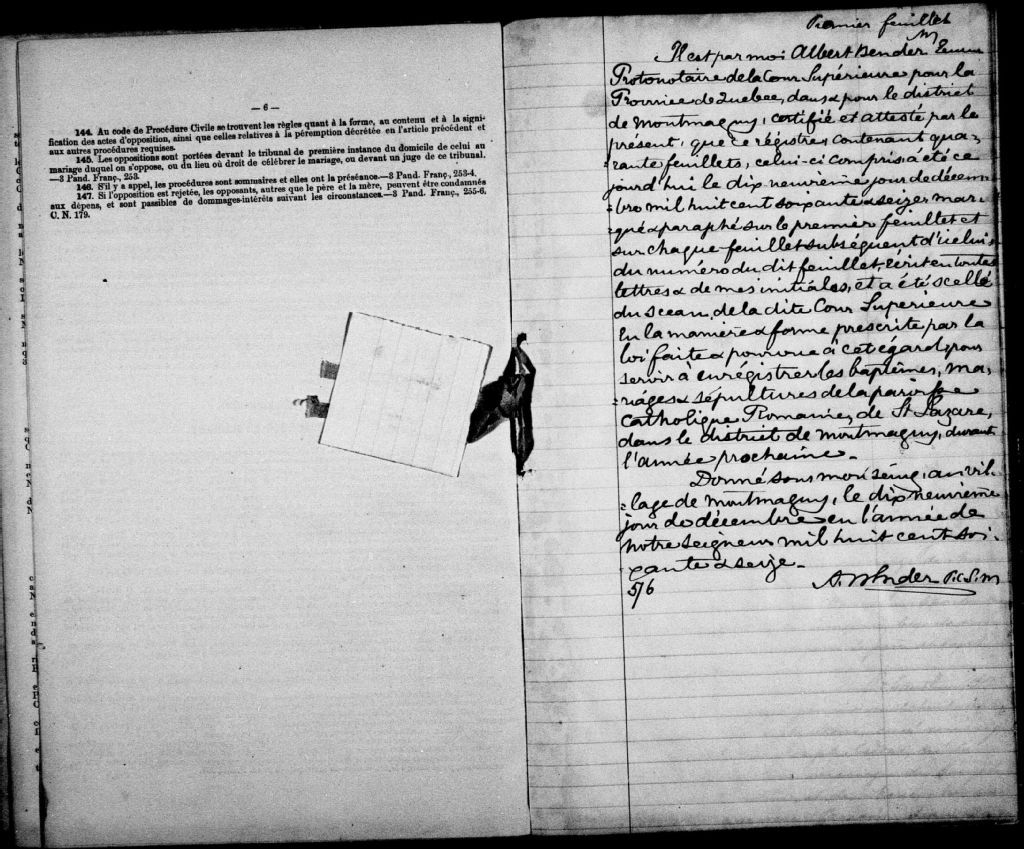 — 6 —
144. Au code de Procédure Civile se trouvent les règles quant à la forme, au contenu et à la signi-
fication des actes d'opposition, ainsi que celles relatives à la péremption décrétée en l'article précédent et
aux autres procédures requises.
145. Les oppositions sont portées devant le tribunal de première instance du domicile de celui au
mariage duquel on s'oppose, ou du lieu où droit de célébrer le mariage, ou devant un juge de ce tribunal.
—3 Pand. Franç., 253.
146. S'il y a appel, les procédures sont sommaires et elles ont la préséance.—3 Pand. Franç., 253-4.
147. Si l'opposition est rejetée, les opposants, autres que le père et la mère, peuvent être condamnés
aux dépens, et sont passibles de dommages-intérêts suivant les circonstances.—3 Pand. Franç., 255-6.
C. N. 179.
Premier feuillet
Il est par moi Albert Bender
Protonotaire de la Cour Supérieure pour la
Province de Quebec, dans & pour le district
de Montmagny, certifié et attesté par le
présent, que ce régistre, contenant qua-
rante feuillets, celui-ci compris, a été ce
jourd'hui le dix neuvième jour de décem
=bre mil huit cent soixante & seize, mar
=qué & paraphé sur le premier feuillet et
sur chaque feuillet subséquent d'icelui
du numéro du dit feuillet, écrit en toutes
lettres & de mes initiales, et a été scellé
du sceau de la dite Cour Supérieure
en la manière & forme prescrite par la
loi faite & pourvue à cet égard, pour
servir à enrégistrer les baptêmes, ma-
=riages & sépultures de la paroisse
catholique Romaine, de St Lazare,
dans le district de Montmagny, durant
l'année prochaine.
Donné sous mon seing, au vil
=lage de Montmagny, le dix neuvième
jour de décembre en l'année de
notre seigneur mil huit cent soi-
xante & seize.
A. Bender P.C.S.M
5/6